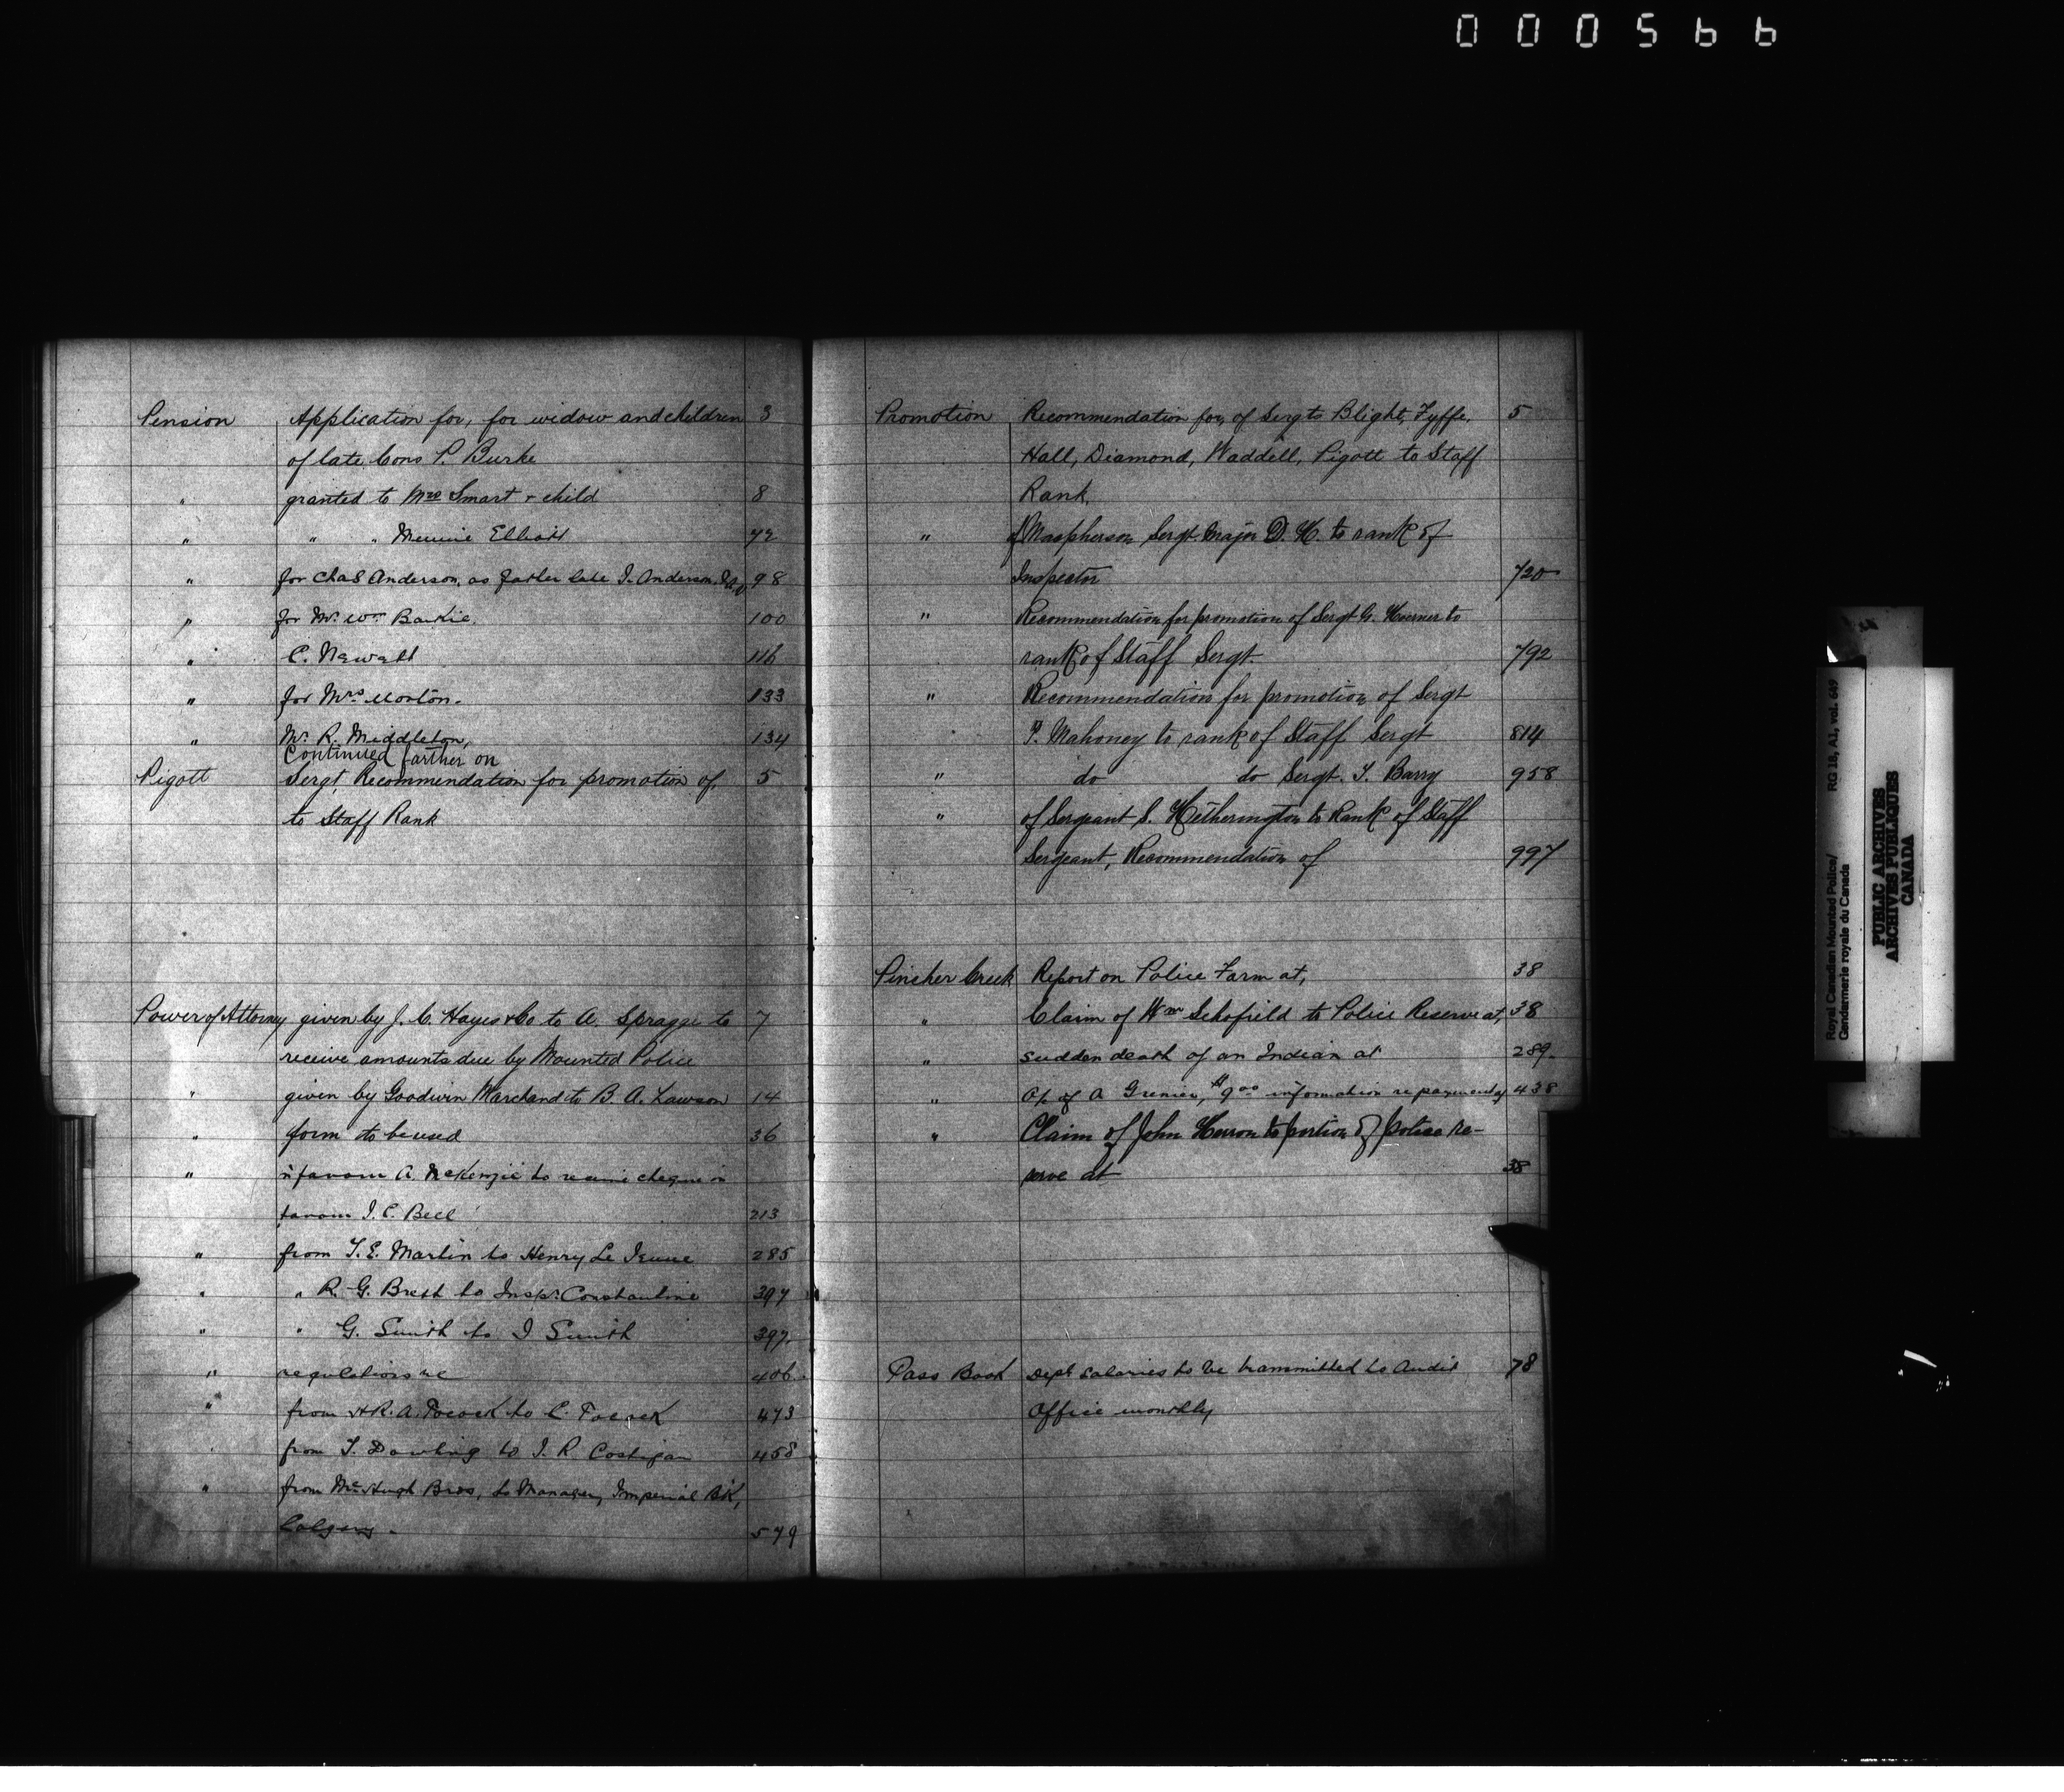 000566
Pension Application for, for widow and children 3
of late Cons P. Burke
" granted to Mrs Smart & child 8
" " " Minnie Elliott 72
" for Chas Anderson, as father late J. Anderson, 98
" for Mr. Wm Baikie. 100
" C. Newatt 116
" for Mrs Morton. 133
" Mr. R. Middleton, 134
Continued farther on
Pigott Sergt, Recommendation for promotion of, 5
to Staff Rank
Power of Attorney given by J. C. Hayes & Co to A. Spragge to 7
receive amounts due by Mounted Police
" given by Goodwin Marchand to B. A. Lawson 14
" form to be used 36
" in favour A. McKenzie to receive cheque in
favour J. C. Bell 213
" from T. E. Martin to Henry Le Jeune 285
" " R. G. Brett to Inspr. Constantine 397
" " G. Smith to J Smith 397.
" regulations re 406
" from H. R. A. Pocock to C. Pocock 473
from T. Dowling to J. R. Costigan 458
" from McHugh Bros, to Manager, Imperial Bk,
Calgary. 579
Promotion Recommendation for, of Sergts Blight, Fyffe, 5
Hall, Diamond, Waddell, Pigott to Staff
Rank.
" of Macpherson Sergt. Major D. H. to rank of
Inspector 720
" Recommendation for promotion of Sergt G. Hoerner to
rank of Staff Sergt. 792
" Recommendation for promotion of Sergt
P. Mahoney to rank of Staff Sergt 814
" do do Sergt. T. Barry 958
" of Sergeant S. Hetherington to Rank of Staff
Sergeant, Recommendation of 997
Pincher Creek Report on Police Farm at, 38
" Claim of Wm Schofield to Police Reserve at, 38
" sudden death of an Indian at 289.
" a/c of A Grenier, $9.00 information re payment of 438
" Claim of John Herron to portion of police re-
serve at 38
Pass Book Dept salaries to be transmitted to Audit 78
Office monthly
Royal Canadian Mounted Police/ RG 18, A1, vol. 649
Gendarmerie royale du Canada
PUBLIC ARCHIVES
ARCHIVES PUBLIQUES
CANADA